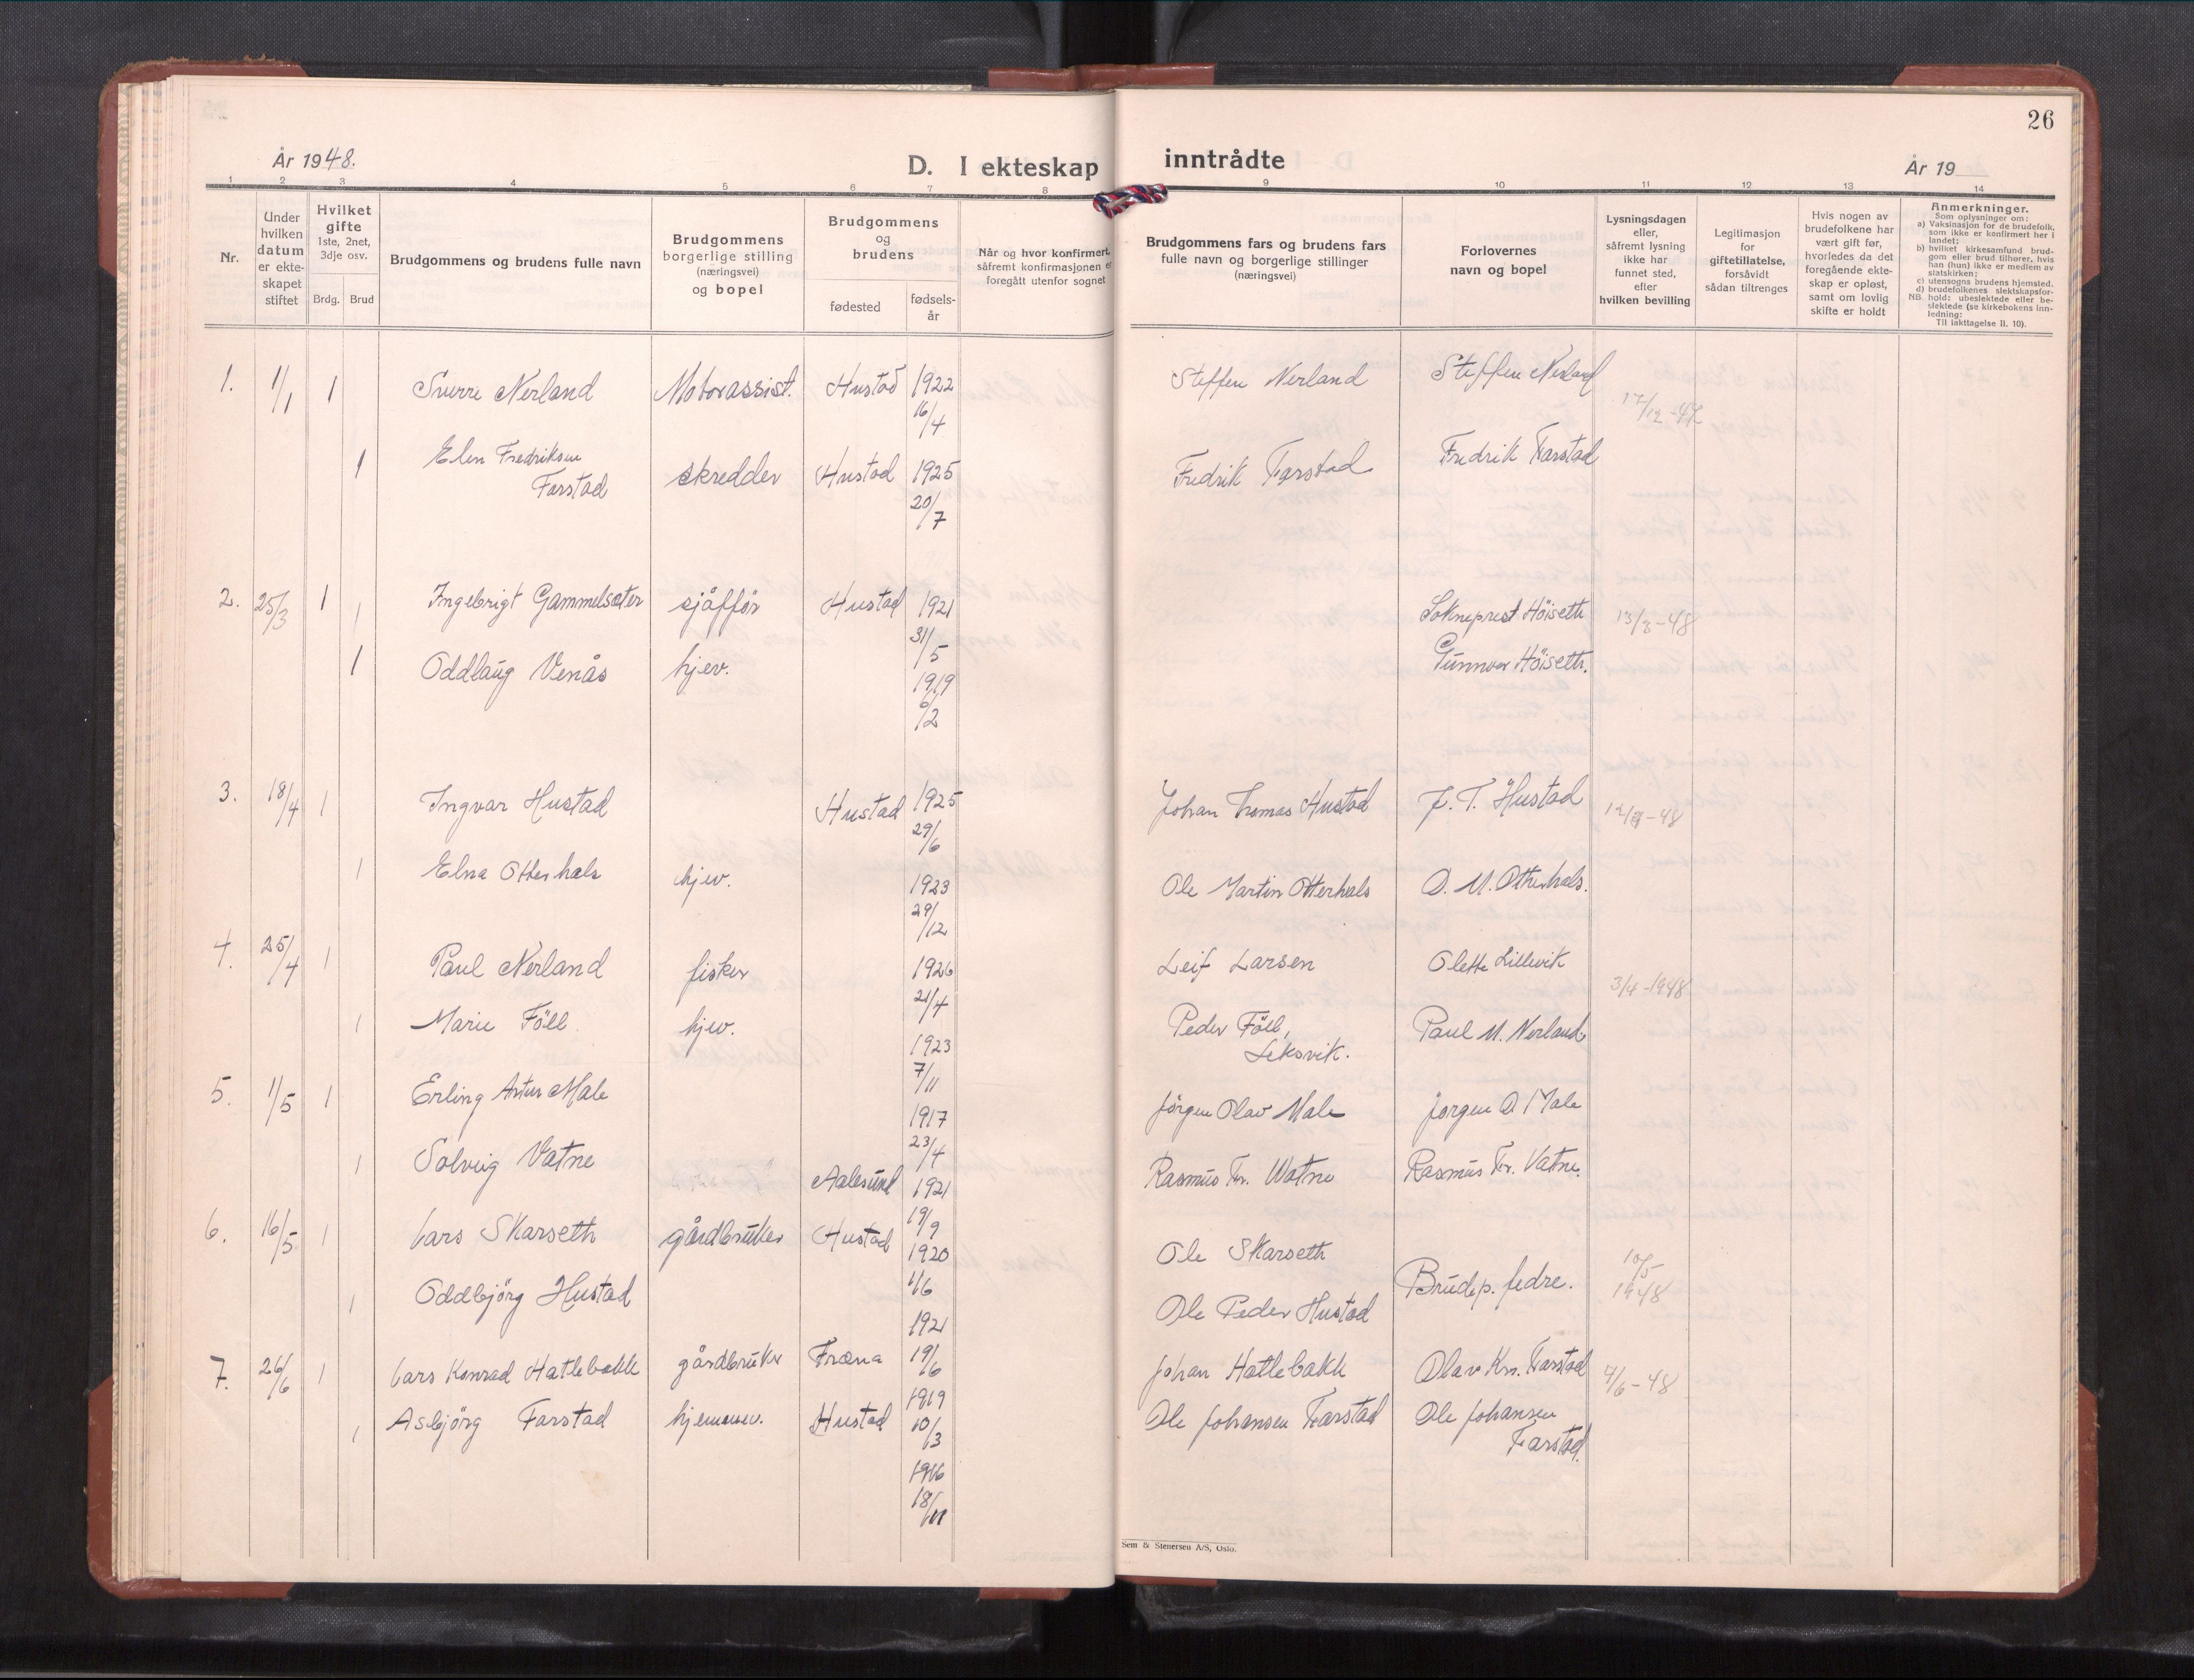 26
År 1948.
D. I ekteskap inntrådte
År 19
1 2 3 4 5 6 7 8 9 10 11 12 13 14
Nr.
Under
hvilken
datum
er ekte-
skapet
stiftet
Hvilket
gifte
1ste, 2net,
3dje osv.
Brdg. Brud
Brudgommens og brudens fulle navn
Brudgommens
borgerlige stilling
(næringsvei)
og bopel
Brudgommens
og
brudens
fødested
fødsels-
år
Når og hvor konfirmert,
såfremt konfirmasjonen er
foregått utenfor sognet
Brudgommens fars og brudens fars
fulle navn og borgerlige stillinger
(næringsvei)
Forlovernes
navn og bopel
Lysningsdagen
eller,
såfremt lysning
ikke har
funnet sted,
efter
hvilken bevilling
Legitimasjon
for
giftetillatelse,
forsåvidt
sådan tiltrenges
Hvis nogen av
brudefolkene har
vært gift før,
hvorledes da det
foregående ekte-
skap er opløst,
samt om lovlig
skifte er holdt
Anmerkninger.
Som oplysninger om:
a) Vaksinasjon for de brudefolk,
som ikke er konfirmert her i
landet;
b) hvilket kirkesamfund brud-
gom eller brud tilhører, hvis
han (hun) ikke er medlem av
statskirken;
c) utensogns brudens hjemsted.
d) brudefolkenes slektskapsfor-
NB hold: ubeslektede eller be-
slektede (se kirkebokens inn-
ledning:
Til iakttagelse II. 10).
1. 1/1 1 Sverre Nerland Motorassist. Hustad 1922 Steffen Nerland Steffen Nerland
16/4 17/12-47
1 Elen Fredriksen
Farstad skredder Hustad 1925 Fredrik Farstad Fredrik Farstad
20/7
2. 25/3 1 Ingebrigt Gammelsæter sjåffør Hustad 1921 Sokneprest Höiseth 13/3-48
31/5
1 Oddlaug Venås hjev. 1919 Gunnvor Höiseth.
6/2
3. 18/4 1 Ingvar Hustad Hustad 1925 Johan Thomas Hustad J. T. Hustad
29/6
1 Elna Otterhals hjev. 1923 Ole Martin Otterhals O. M. Otterhals.
29/12
4. 25/4 1 Paul Nerland fisker 1926 Leif Larsen Olette Lillevik
21/4 3/4-1948
1 Marie Föll hjev. 1923 Peder Föll, Paul M. Nerland
Leksvik.
7/11
5. 1/5 1 Erling Artur Male 1917 Jörgen Olav Male Jörgen O Male
23/4
1 Solveig Vatne Aalesund 1921 Rasmus Kr. Watne Rasmus Kr. Vatne.
19/9
6. 16/5 1 Lars Skarseth gårdbruker Hustad 1920 Ole Skarseth Brudep. fedre. 10/5
1948
1/6
1 Oddbjörg Hustad 1921 Ole Peder Hustad
19/6
7. 26/6 1 Lars Konrad Hatlebakk gårdbruker Fræna 1919 Johan Hatlebakk Olav Kr. Farstad 7/6-48
10/3
1 Asbjörg Farstad hjemmev. Hustad 1916 Ole Johansen Farstad Ole Johansen
Farstad.
18/11
Sem & Stenersen A/S, Oslo.